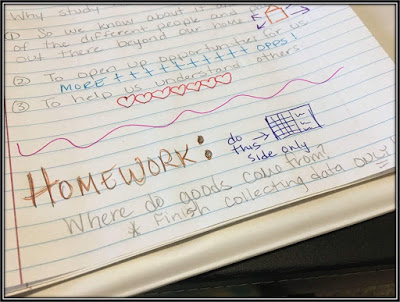 Why study
① So we know about it
of the different people and
out there beyond our home
② To open up opportunities for us
MORE ++++++++++ OPPS!
③ To help us understand others
HOMEWORK:
do this → side only
Where do goods come from?
* Finish collecting data ONLY